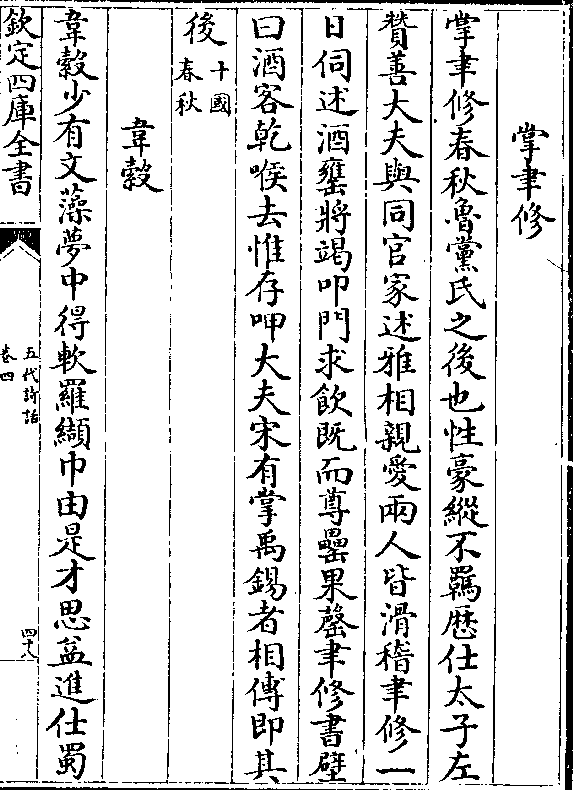 掌聿修
掌聿修春秋魯黨氏之後也性豪縱不羈歴仕太子左
贊善大夫與同官家述雅相親愛兩人皆滑稽聿修一
日伺述酒罋將竭叩門求飲既而尊罍果罄聿修書壁
曰酒客乾喉去惟存呷大夫宋有掌禹錫者相傳即其
後十國
春秋
韋縠
韋縠少有文藻夢中得軟羅纈巾由是才思益進仕蜀
欽定四庫全書
五代詩話
卷四
四十八